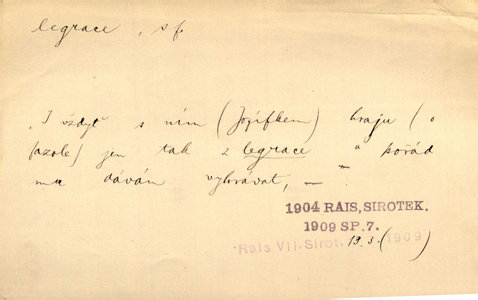 legrace, sf.
„I vždyť s ním (Jozífkem) hraju (o
fazole) jen tak z legrace a pořád
mu dávám vyhrávat, —
1904 RAIS, SIROTEK.
1909 SP. 7.
Rais VII. Sirot. 19.3. (1909)